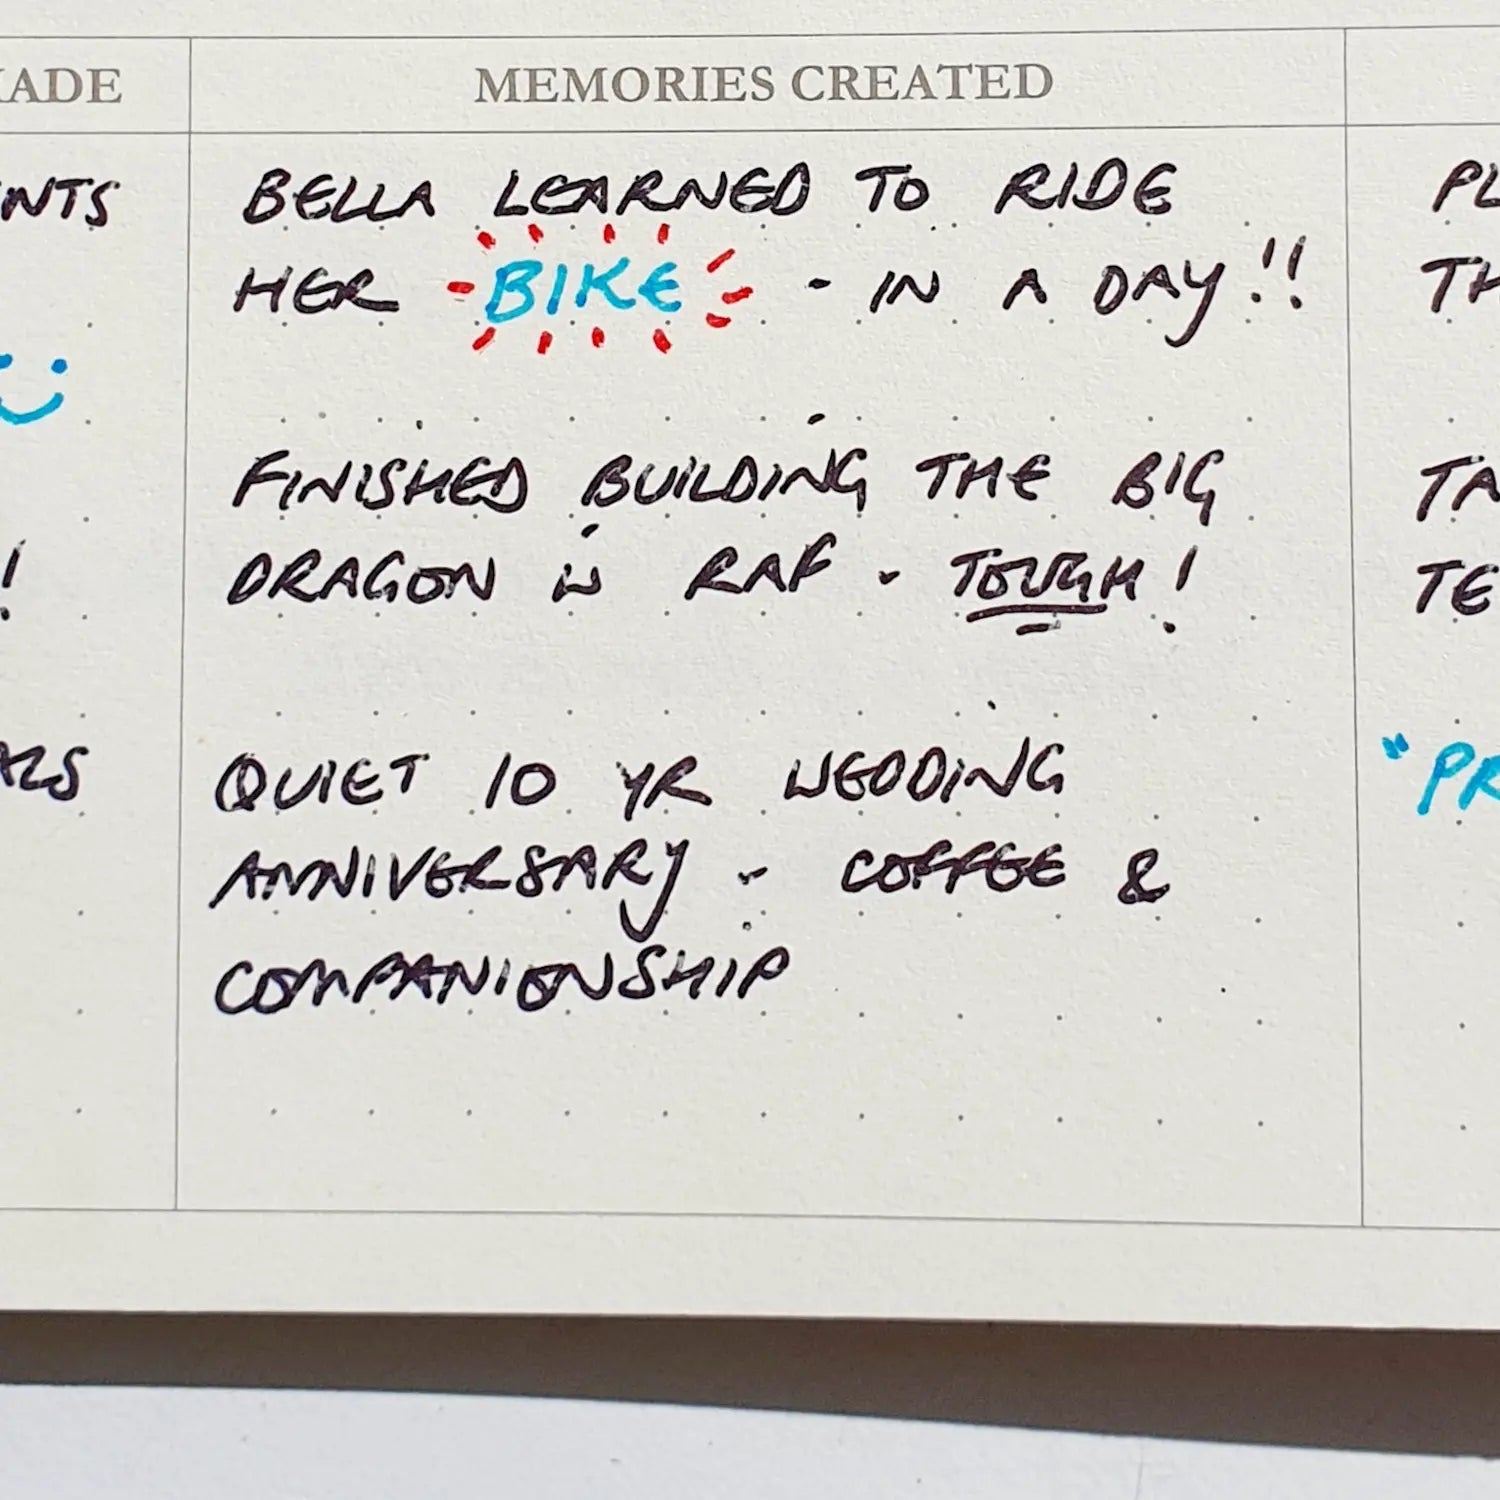 MADE
MEMORIES CREATED
NTS
BELLA LEARNED TO RIDE
HER BIKE - IN A DAY!!
FINISHED BUILDING THE BIG
DRAGON W RAF - TOUGH!
!
QUIET 10 YR WEDDING
ANNIVERSARY - COFFEE &
COMPANIONSHIP
PL
TH
TA
TE
"PR